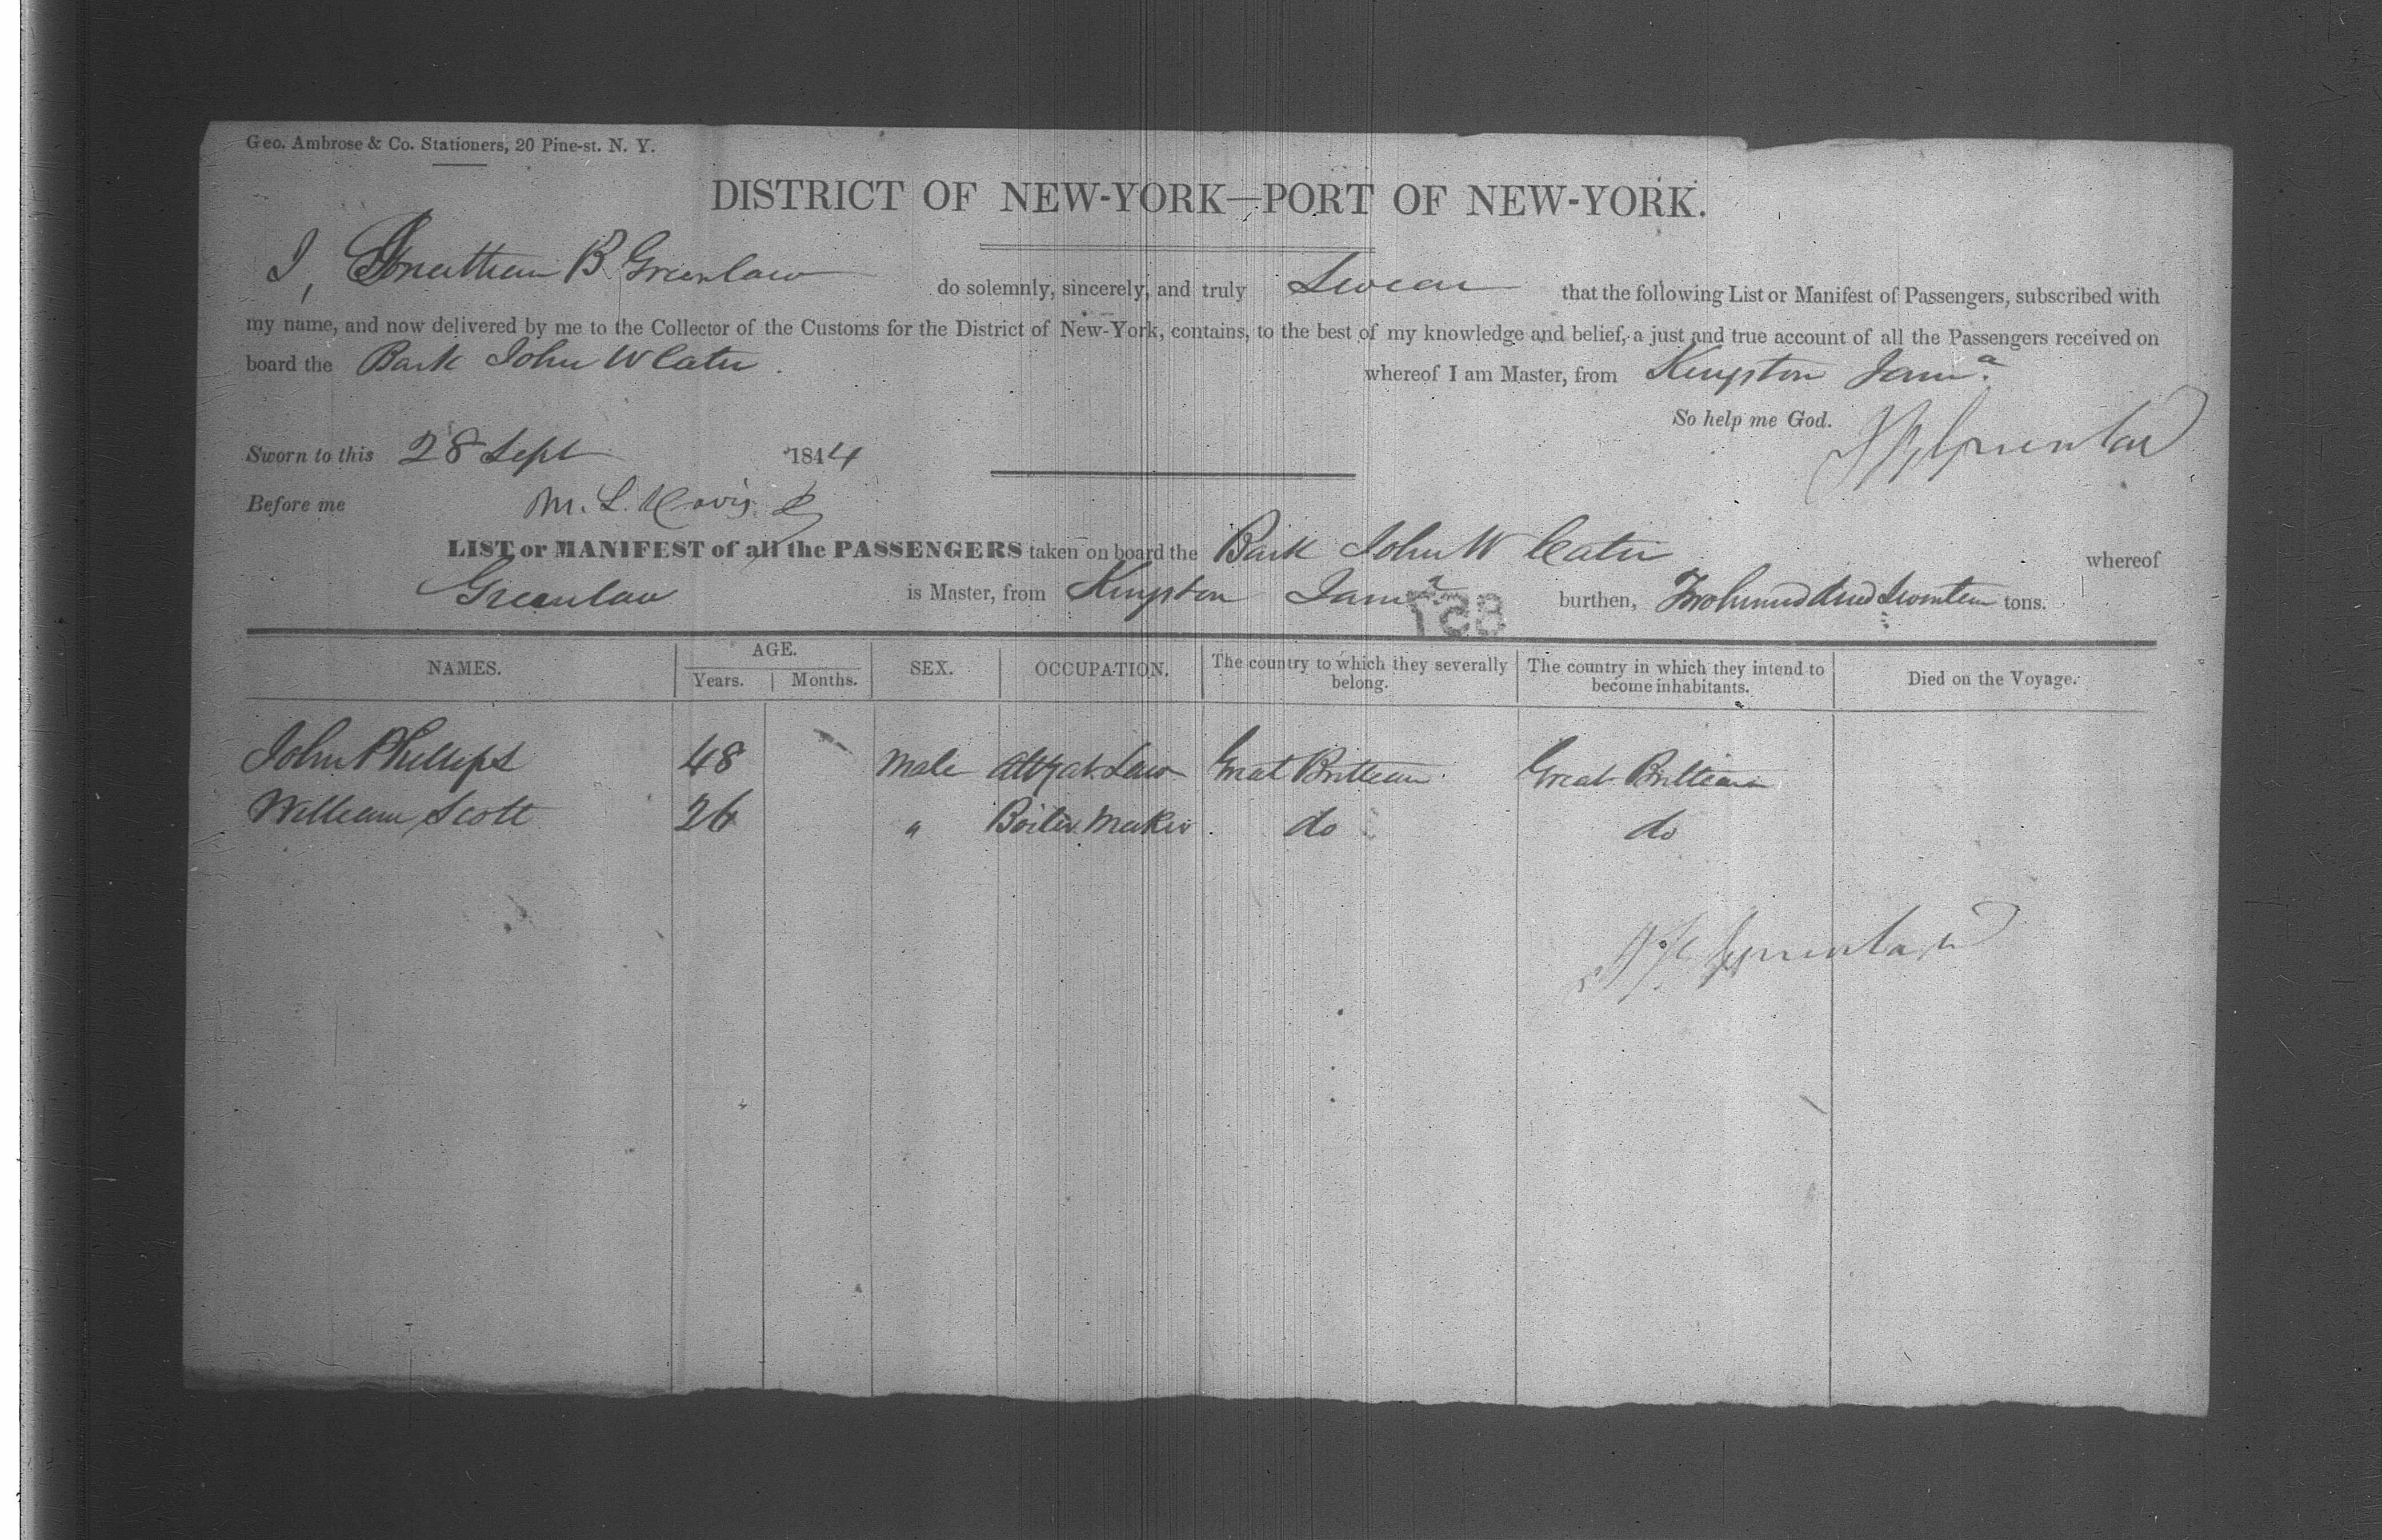 Geo. Ambrose & Co. Stationers, 20 Pine-st. N. Y.
DISTRICT OF NEW-YORK—PORT OF NEW-YORK.
I, Jonathan B Greenlaw do solemnly, sincerely, and truly Swear that the following List or Manifest of Passengers, subscribed with
my name, and now delivered by me to the Collector of the Customs for the District of New-York, contains, to the best of my knowledge and belief, a just and true account of all the Passengers received on
board the Bark John W Cater whereof I am Master, from Kingston Jamª.
So help me God. J B Greenlaw
Sworn to this 28 Sept 1844
Before me M. L. Davis
LIST or MANIFEST of all the PASSENGERS taken on board the Bark John W Cater whereof
Greenlaw is Master, from Kingston Jamª burthen, Two hundred tons.
NAMES. AGE. SEX. OCCUPATION. The country to which they severally belong. The country in which they intend to become inhabitants. Died on the Voyage.
Years. Months.
John Phillips 48 Male Atty at Law Great Brittean Great Brittean
William Scott 26 " Boiler Maker do do
J B Greenlaw